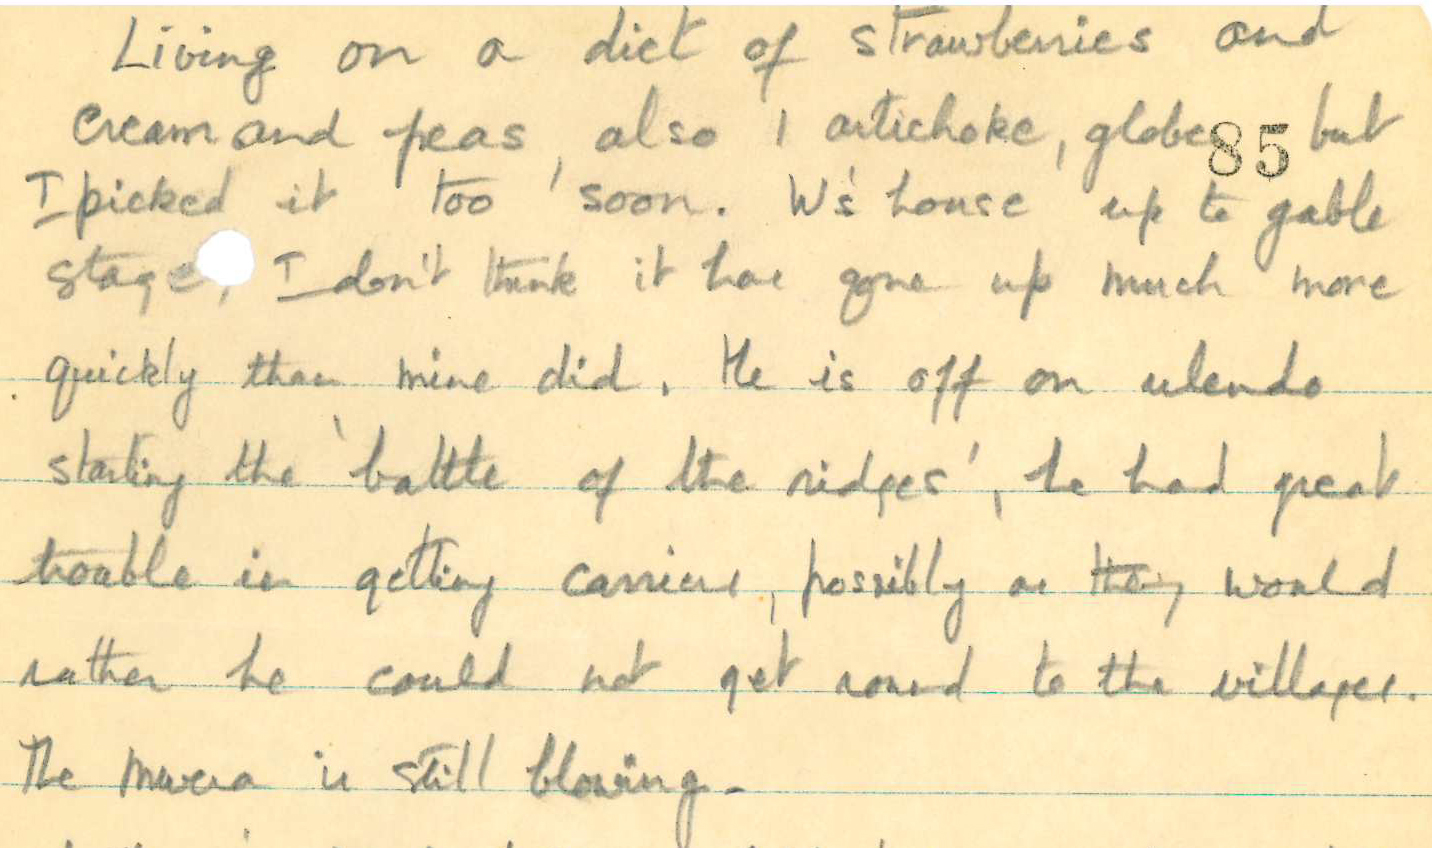 Living on a diet of strawberries and
cream and peas, also 1 artichoke, globe 85 but
I picked it too soon. W's house up to gable
stage, I don't think it has gone up much more
quickly than mine did. He is off on ulendo
starting the 'battle of the ridges', he had great
trouble in getting carriers, possibly as they would
rather he could not get round to the villages.
The mwera is still blowing.